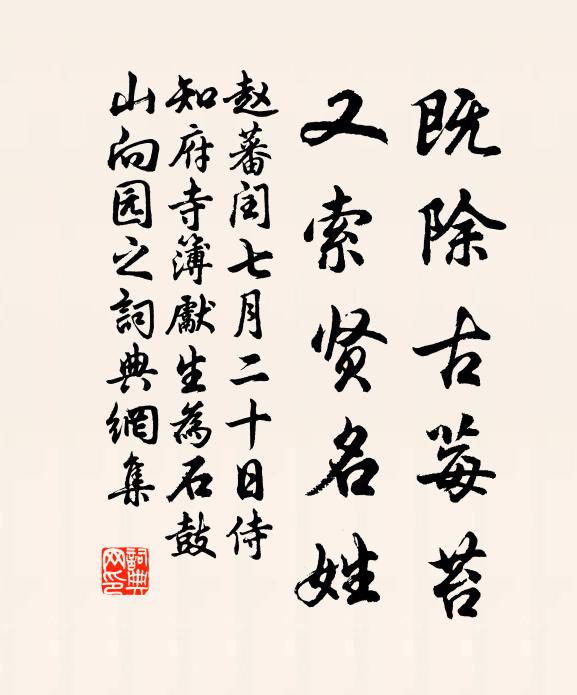 既除古莓苔
又索贤名姓
赵蕃闰七月二十日侍
知府寺簿獻生為石鼓
山向园之詞典網集
詞典网印